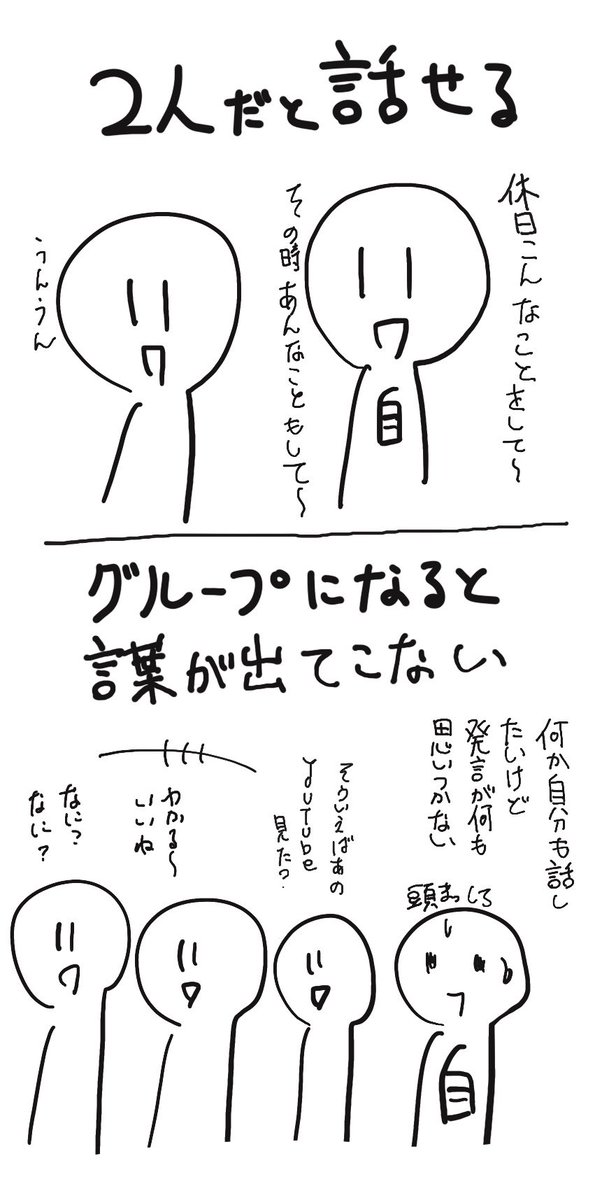 2人だと話せる
休日こんなことをして～
その時あんなこともして～
うんうん
自
グループになると
言葉が出てこない
何か自分も話し
たいけど
発言が何も
思いつかない
頭まっしろ
そういえばあの
YouTube
見た?
わかる～
いいね
なに?
なに?
自